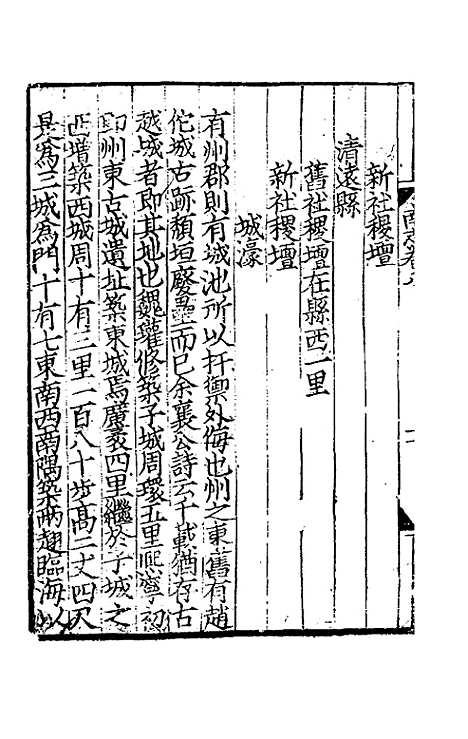 新社稷壇
清遠縣
舊社稷壇在縣西二里
新社稷壇
城濠
有州郡則有城池所以扞禦外侮也州之東舊有趙
佗城古跡頹垣廢壘而已余襄公詩云千載猶存古
越城者即其地也魏瓘修築子城周環五里熙寧初
即州東古城遺址築東城焉廣袤四里繼於子城之
西增築西城周十有三里一百八十步高二丈四尺
是為三城為門十有七東南西南隅築兩翅臨海以